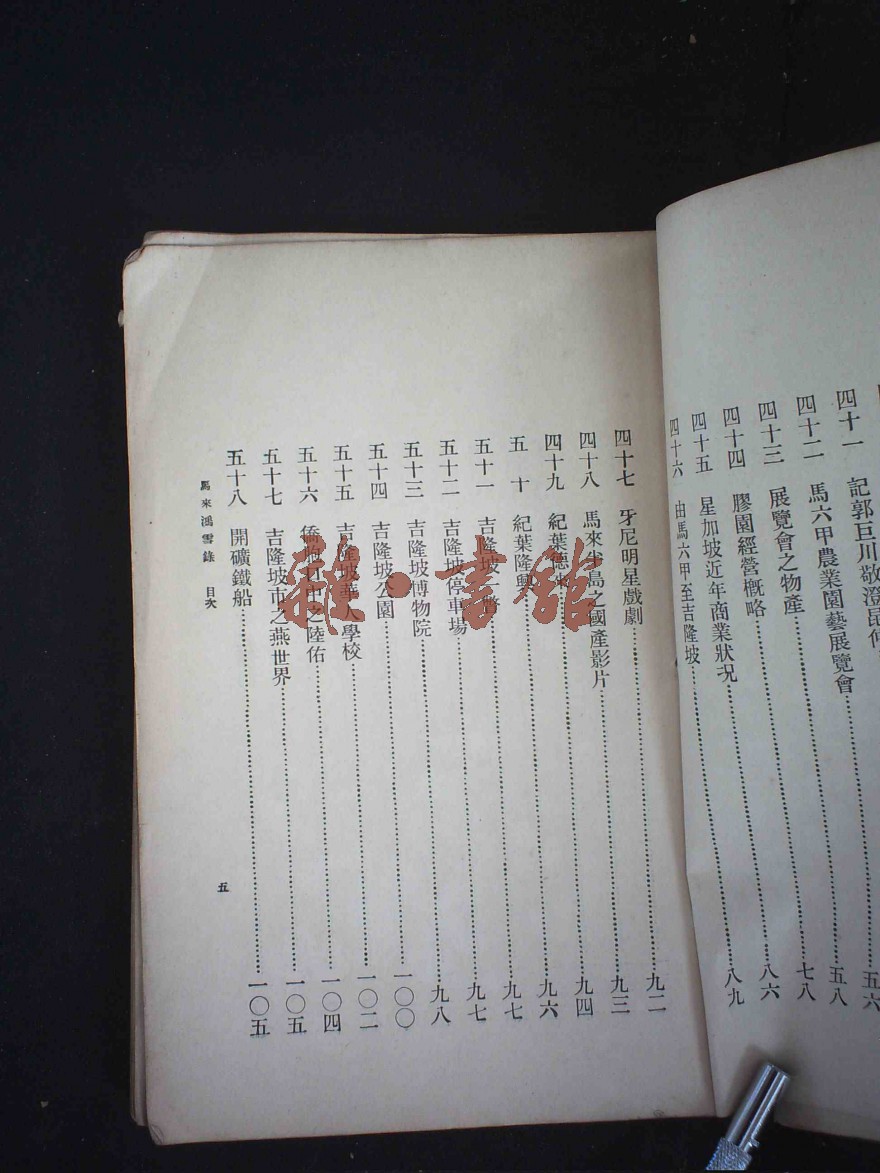 四十一 記郭巨川敬澄昆仲 五六
四十二 馬六甲農業園藝展覽會 五八
四十三 展覽會之物產 七八
四十四 膠園經營概略 八六
四十五 星加坡近年商業狀況 八九
四十六 由馬六甲至吉隆坡
四十七 牙尼明星戲劇 九二
四十八 馬來半島之國產影片 九三
四十九 紀葉德來 九四
五十 紀葉隆興 九六
五十一 吉隆坡一瞥 九七
五十二 吉隆坡停車場 九七
五十三 吉隆坡博物院 九八
五十四 吉隆坡公園 一〇〇
五十五 吉隆坡華人學校 一〇二
五十六 僑 之陸佑 一〇四
五十七 吉隆坡市之燕世界 一〇五
五十八 開礦鐵船 一〇五
馬來鴻雪錄 目次
五
雜·書館